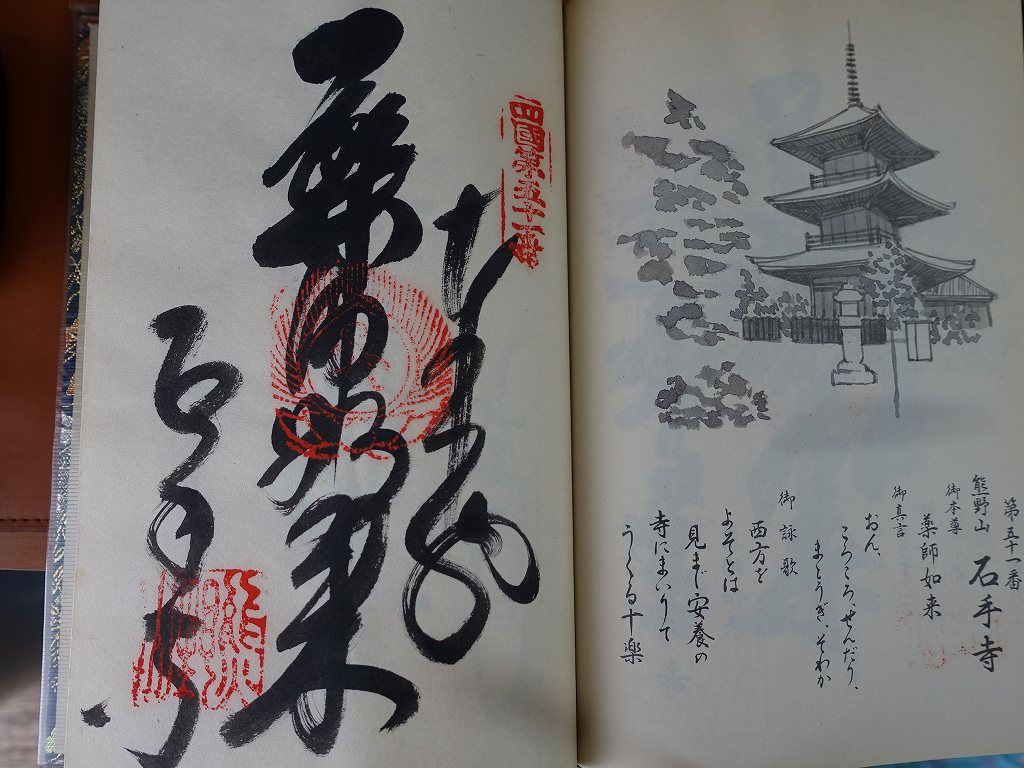 第五十一番
熊野山 石手寺
御本尊
薬師如来
御真言
おん、
ころころ、せんだり、
まとうぎ、そわか
御詠歌
西方を
よそとは
見まじ安養の
寺にまいりて
うくる十楽
四國第五十一番
薬師如来
石手寺